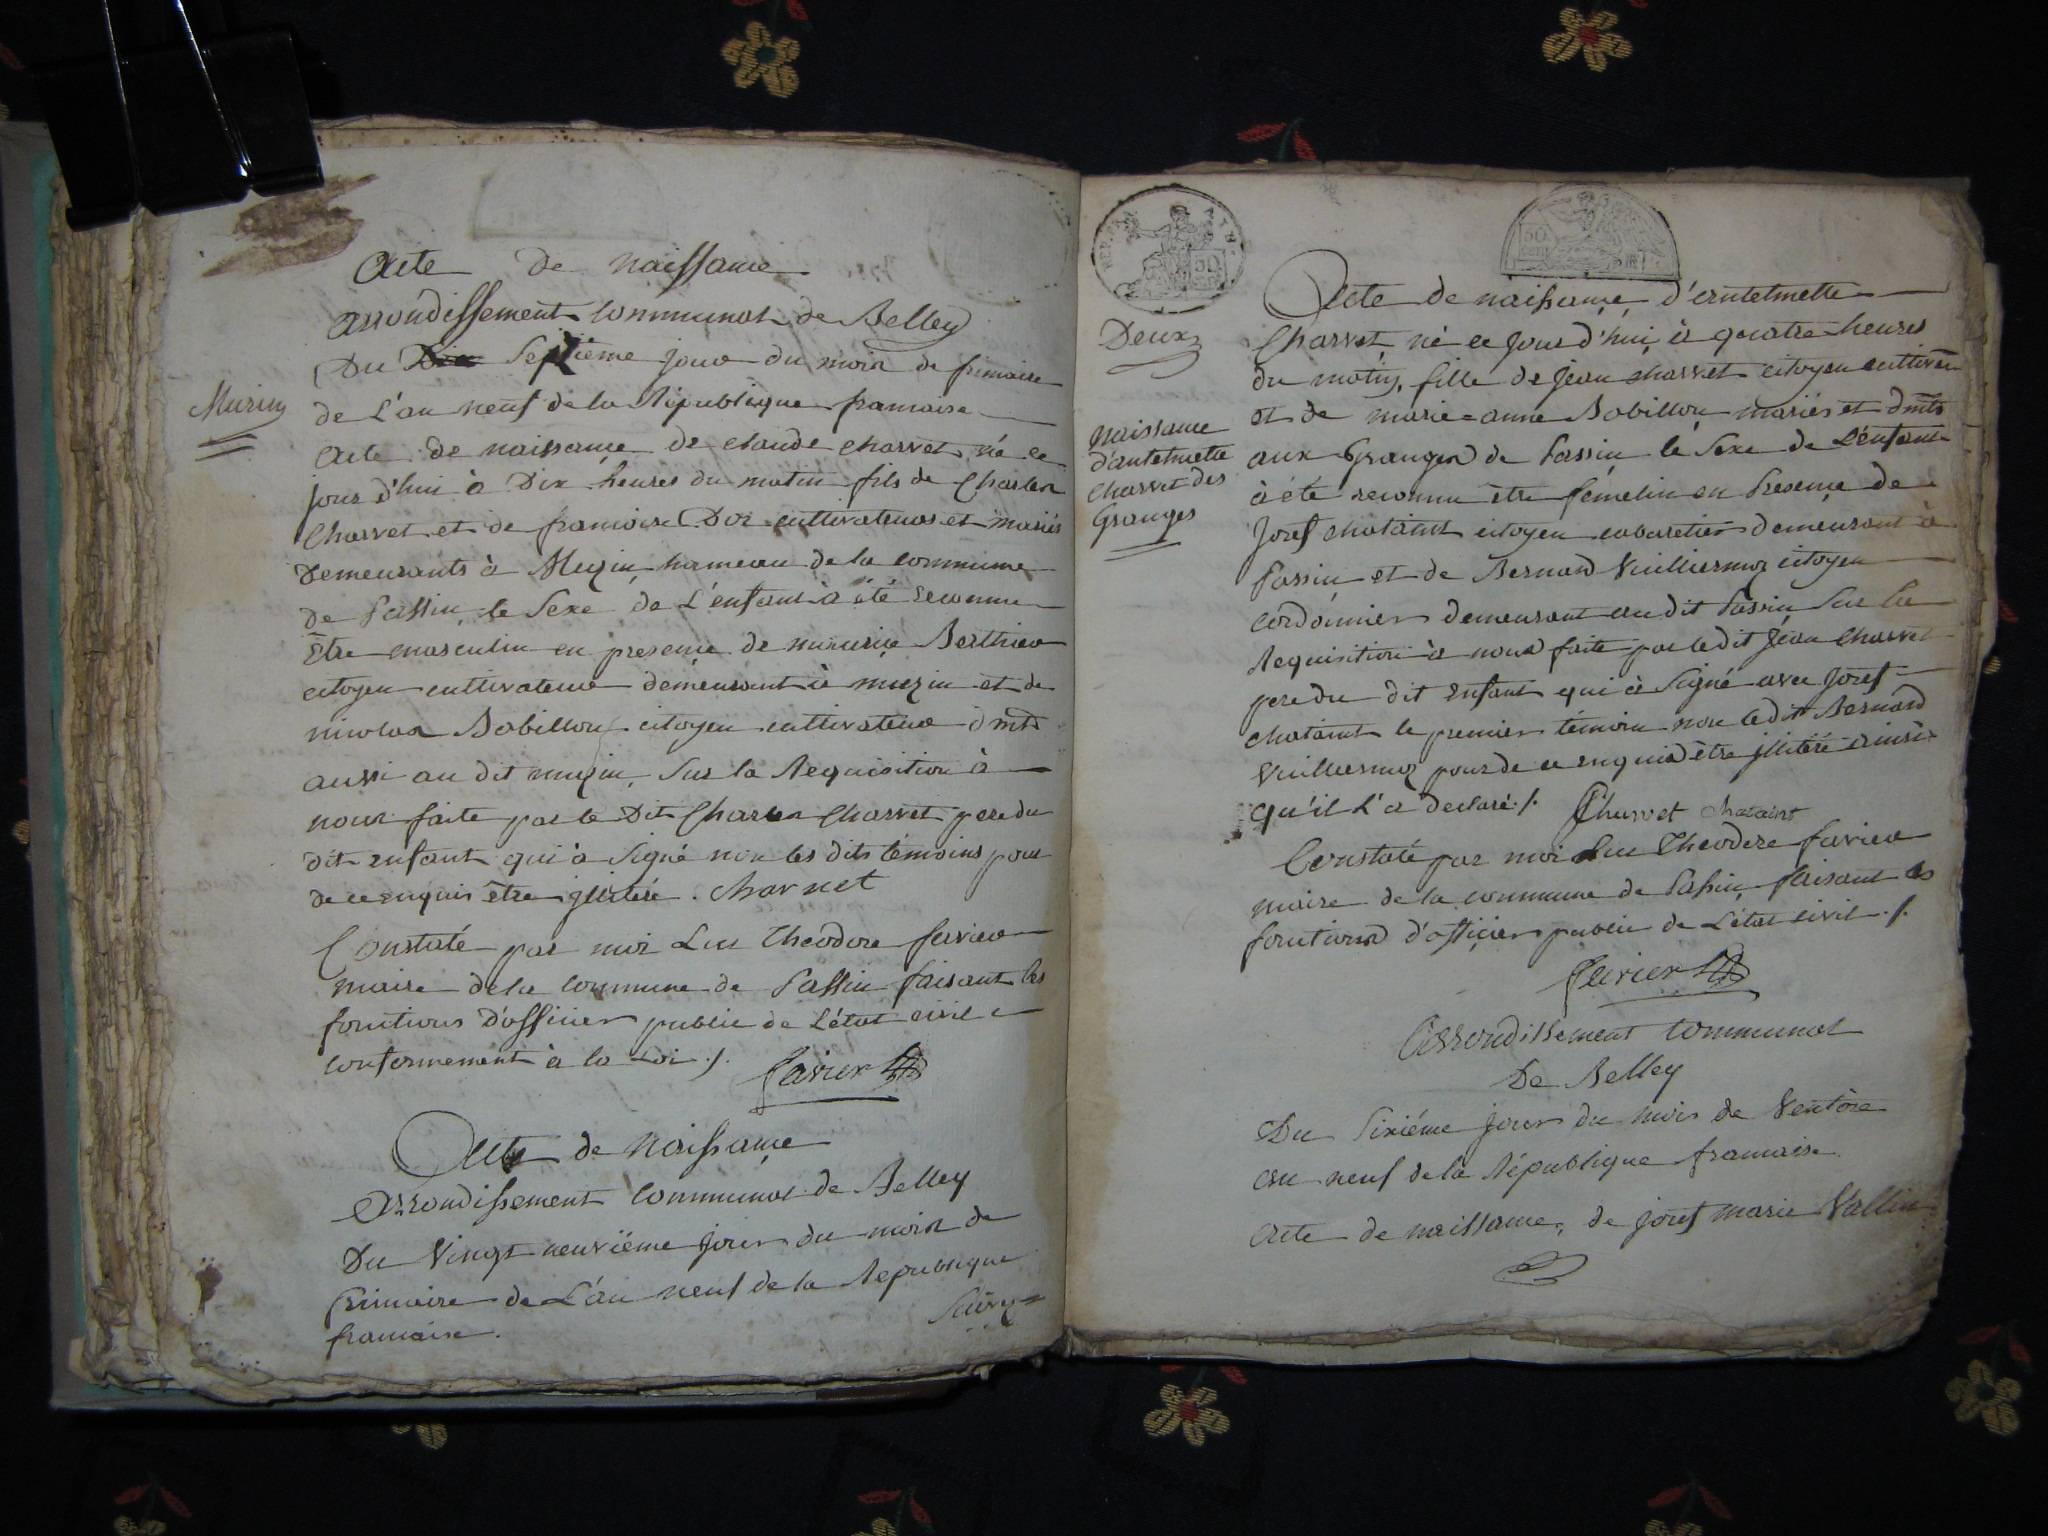 Acte de naissance
arrondissement communal de Belley
Du Dix Septième jour du mois de frimaire
Muzin
de L'an neuf de la République francaise
Acte de naissance de claude charvet né ce
jour d'hui à Dix heures du matin fils de Charles
Charvet et de francoise Dor cultivateurs et mariés
Demeurants à Muzin hameau de la commune
De Passin le Sexe de L'enfant à été reconnu
Etre masculin en presence de Berthier
citoyen cultivateur demeurant à muzin et de
nicolas Bobillon citoyen cultivateur dmts
aussi au dit muzin, Sur la Requisition à
nous faite par le Dit Charles Charvet pere du
dit enfant qui à Signé non les dits témoins pour
de ce enquis être illitéré. Charvet
Constaté par moi Luc Theodore favier
maire de la commune de Passin faisant les
fonctions D'officier public de L'état civil
conformement à la Loi ./. favier
Acte de Naissance
Arrondissement communal de Belley
Du Vingt neuvième jour du mois de
frimaire de L'an neuf de la Republique
francaise.
Suivz
REP. FRA
50
50
cen
Deux
naissance
d'antelmette
Charvet des
Granges
Acte de naissance d'antelmette
Charvet né ce jour d'hui à quatre heures
du matin, fille de Jean charvet citoyen cultivateur
et de marie=anne Bobillon mariés et dmts
aux Granges de Passin le Sexe de L'énfant
à été reconnu être fémelin en Presence de
Josef chataint citoyen cabaretier demeurant à
Passin et de Bernard Vuilliermoz citoyen
cordonnier demeurant au dit Passin Sur la
Requisition à nous faite par le dit Jean Charvet
pere du dit Enfant qui à Signé avec Josef
chataint le premier témoin non le dit Bernard
Vuilliermoz pour de ce enquis être illitéré ainsi
qu'il L'a declaré ./. Charvet chataint
Constaté par moi Luc Theodore favier
maire de la commune de Passin faisant les
fonctions d'officier public de L'état civil ./.
favier
Arrondissement Communal
De Belley
Du Sixiéme jour du mois de Ventôse
an neuf de la République francaise.
Acte de naissance, de josef marie Vallin